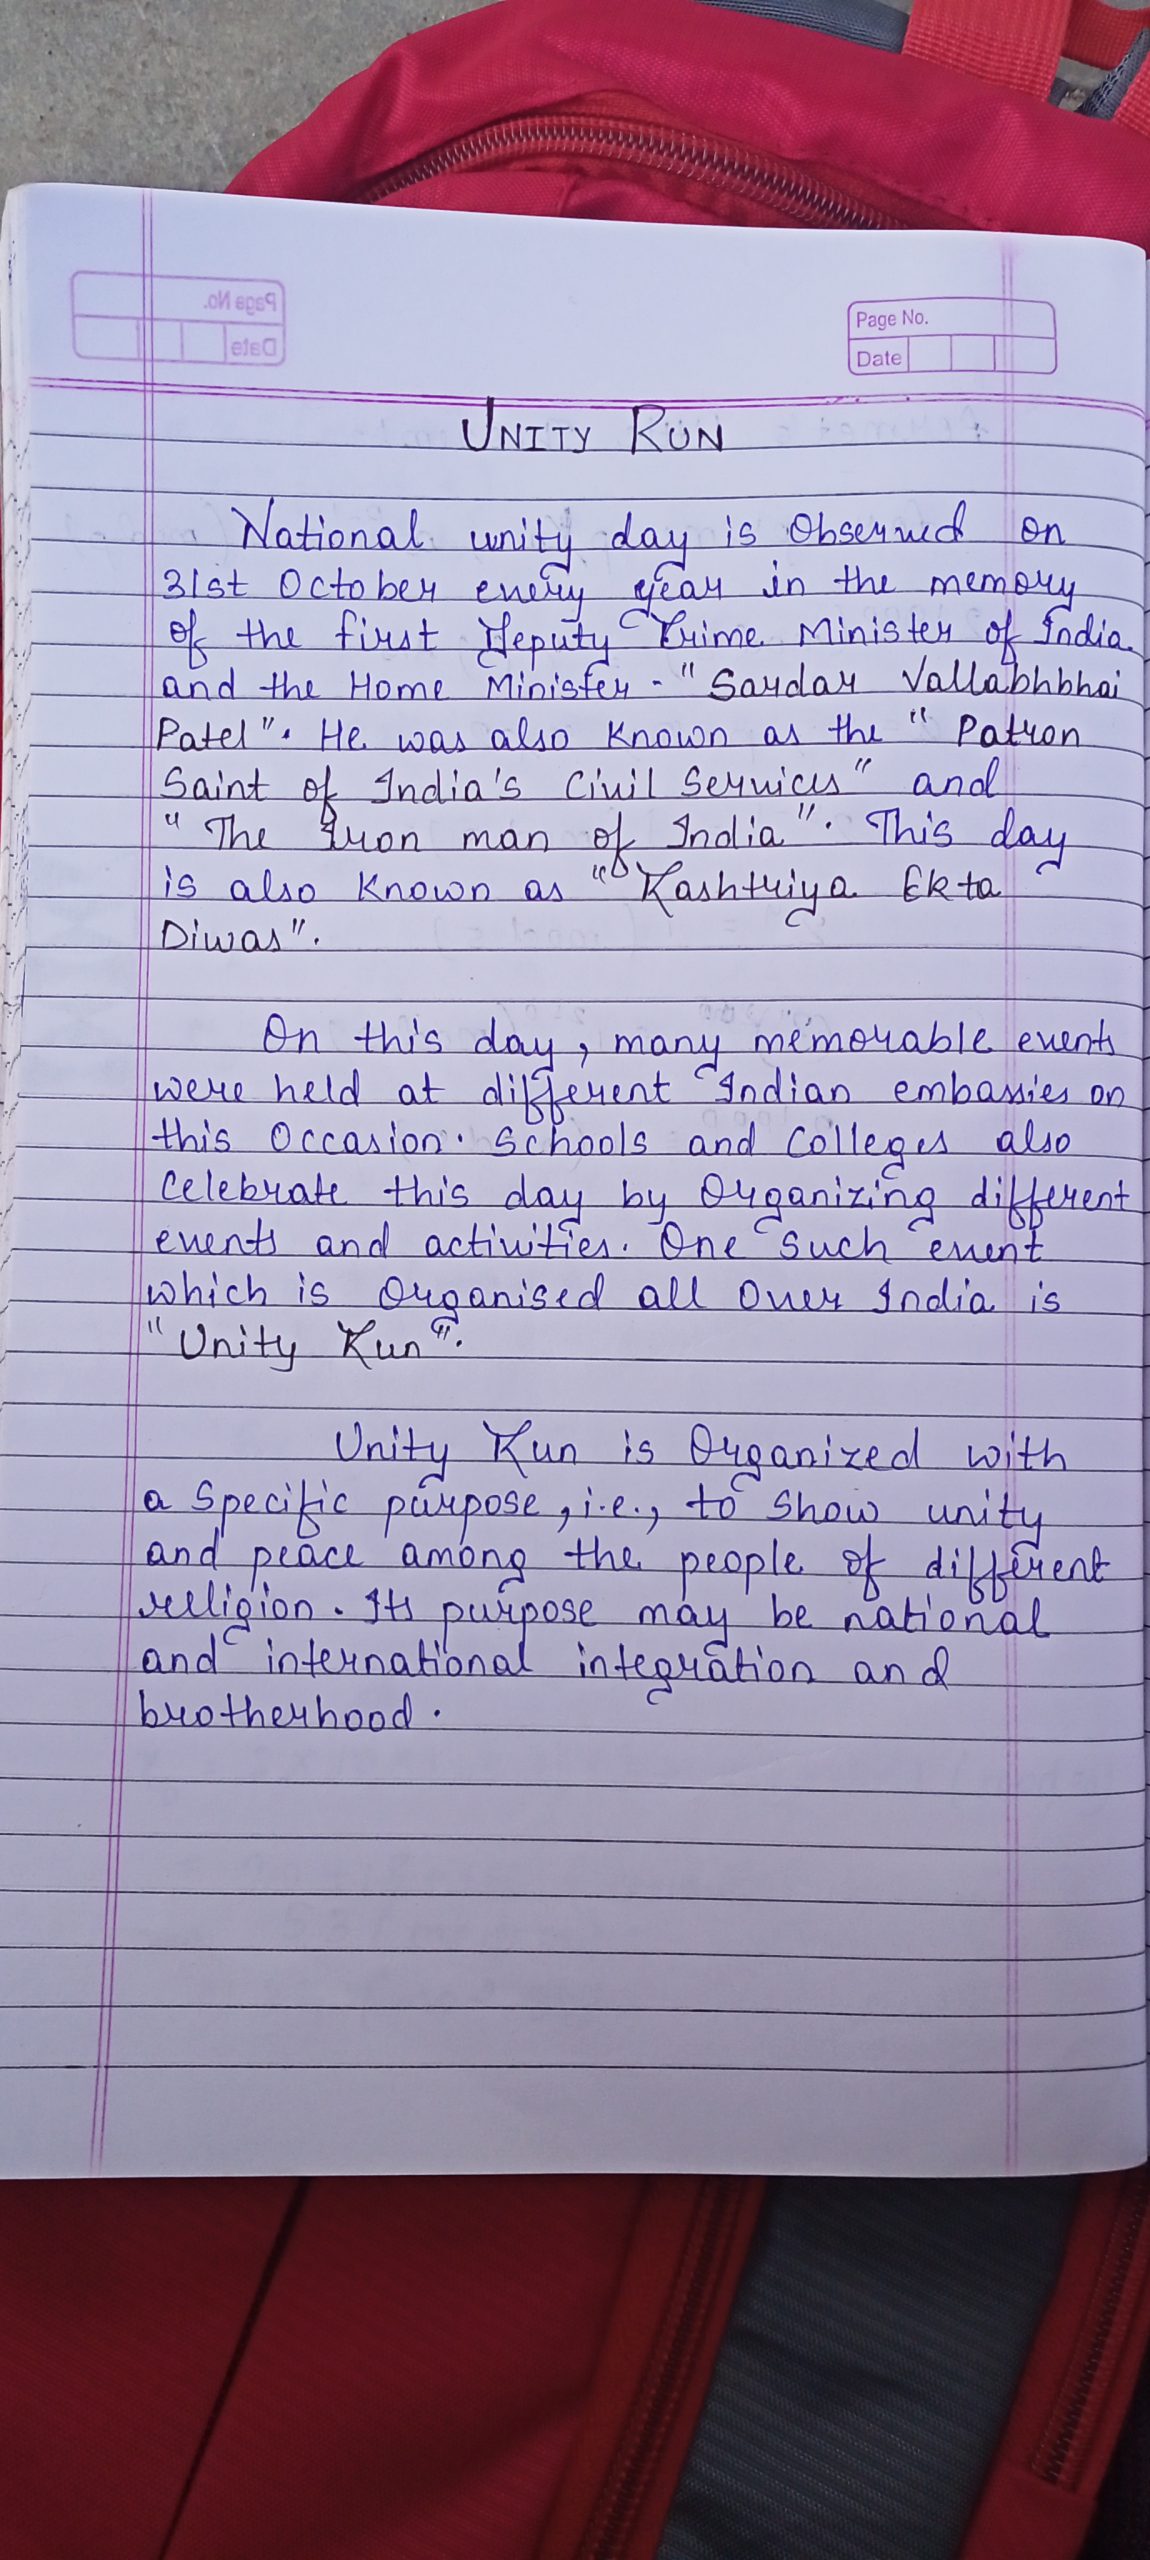 Page No.
Date
UNITY RUN
National unity day is Observed on
31st October every year in the memory
of the first Deputy Prime Minister of India
and the Home Minister - "Sardar Vallabhbhai
Patel". He was also known as the "Patron
Saint of India's Civil Services" and
"The Iron man of India". This day
is also known as "Rashtriya Ekta
Diwas".
On this day, many memorable events
were held at different Indian embassies on
this Occasion. Schools and Colleges also
Celebrate this day by Organizing different
events and activities. One such event
which is Organised all Over India is
"Unity Run".
Unity Run is Organized with
a Specific purpose, i.e., to Show unity
and peace among the people of different
religion. Its purpose may be national
and international integration and
brotherhood.